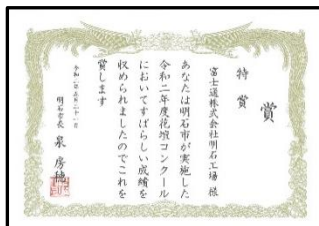 賞
特賞
富士通株式会社明石工場 様
あなたは明石市が実施した
令和二年度花壇コンクール
においてすばらしい成績を
収められましたのでこれを
賞します
明石市長 泉 房穂